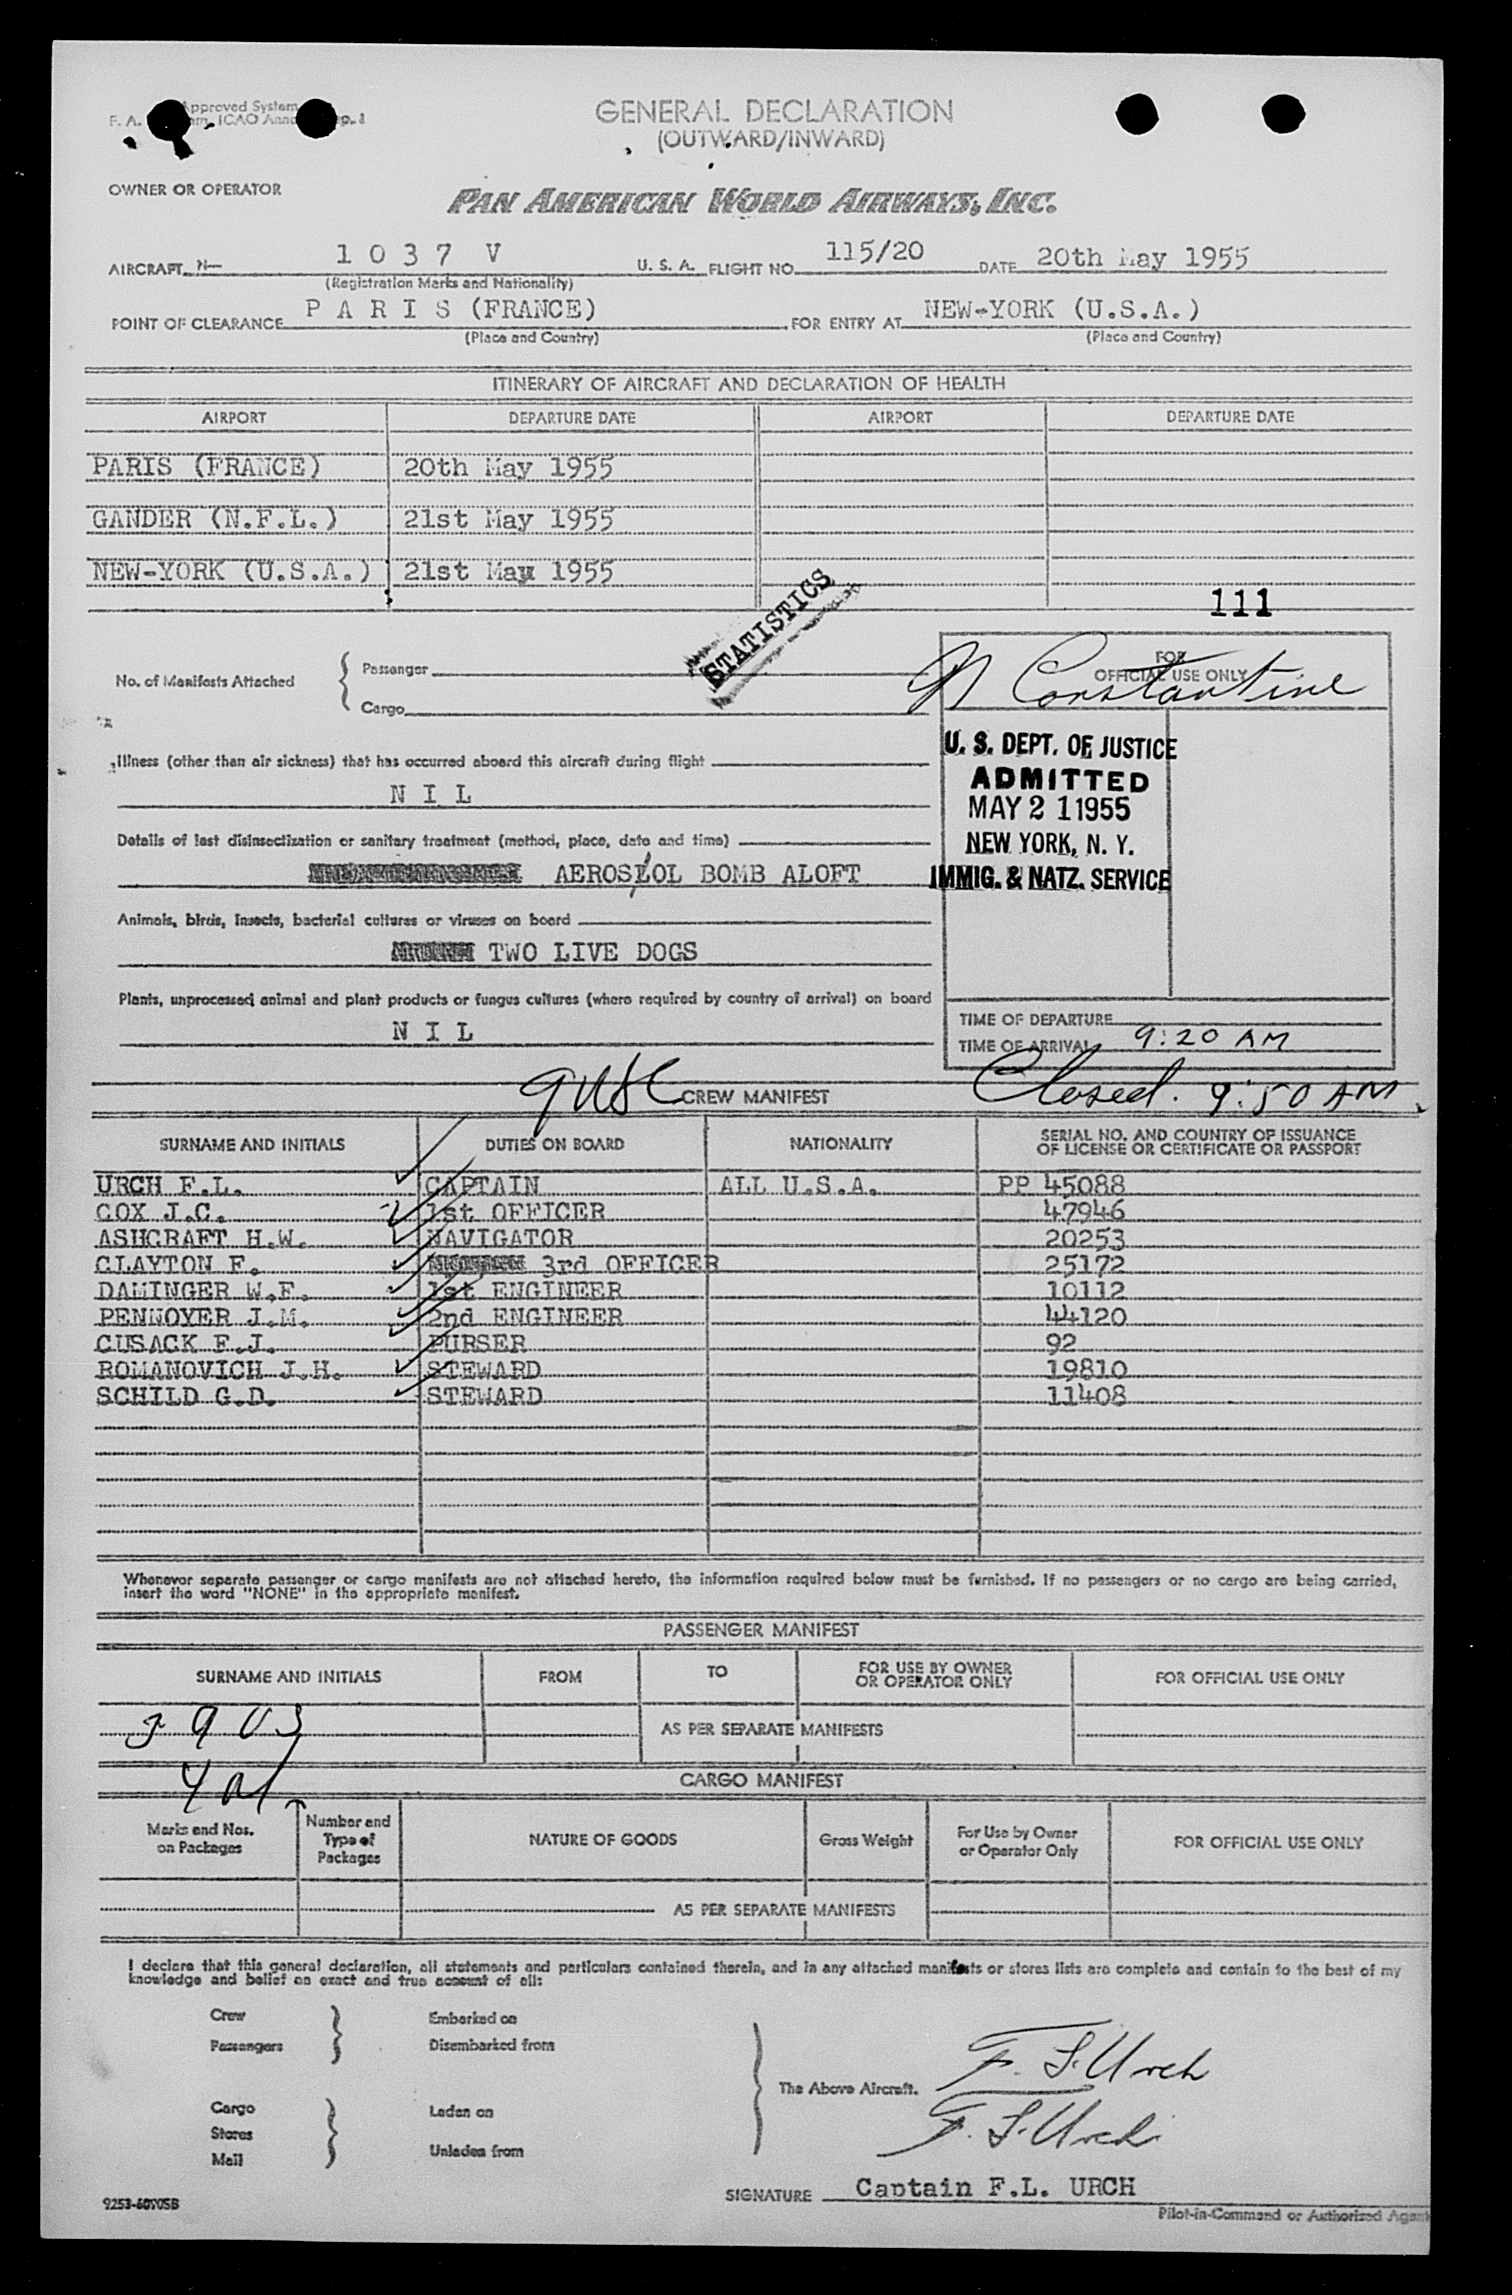 Approved System
F. A. ICAO
GENERAL DECLARATION
(OUTWARD/INWARD)
OWNER OR OPERATOR
PAN AMERICAN WORLD AIRWAYS, INC.
AIRCRAFT N— 1 0 3 7 V U. S. A. FLIGHT NO. 115/20 DATE 20th May 1955
(Registration Marks and Nationality)
POINT OF CLEARANCE P A R I S (FRANCE) FOR ENTRY AT NEW-YORK (U.S.A.)
(Place and Country) (Place and Country)
ITINERARY OF AIRCRAFT AND DECLARATION OF HEALTH
AIRPORT DEPARTURE DATE AIRPORT DEPARTURE DATE
PARIS (FRANCE) 20th May 1955
GANDER (N.F.L.) 21st May 1955
NEW-YORK (U.S.A.) 21st May 1955
111
STATISTICS
No. of Manifests Attached
Passenger
Cargo
FOR
OFFICIAL USE ONLY
N Constantine
U. S. DEPT. OF JUSTICE
ADMITTED
MAY 21 1955
NEW YORK, N. Y.
IMMIG. & NATZ. SERVICE
Illness (other than air sickness) that has occurred aboard this aircraft during flight
N I L
Details of last disinsectization or sanitary treatment (method, place, date and time)
AEROSLOL BOMB ALOFT
Animals, birds, insects, bacterial cultures or viruses on board
TWO LIVE DOGS
Plants, unprocessed animal and plant products or fungus cultures (where required by country of arrival) on board
N I L
TIME OF DEPARTURE
TIME OF ARRIVAL 9:20 AM
Closed. 9:50 AM.
9 USC
CREW MANIFEST
SURNAME AND INITIALS DUTIES ON BOARD NATIONALITY SERIAL NO. AND COUNTRY OF ISSUANCE
OF LICENSE OR CERTIFICATE OR PASSPORT
URCH F.L. CAPTAIN ALL U.S.A. PP 45088
COX J.C. 1st OFFICER 47946
ASHCRAFT H.W. NAVIGATOR 20253
CLAYTON F. 3rd OFFICER 25172
DAMINGER W.F. 1st ENGINEER 10112
PENNOYER J.M. 2nd ENGINEER 44120
CUSACK F.J. PURSER 92
ROMANOVICH J.H. STEWARD 19810
SCHILD G.D. STEWARD 11408
Whenever separate passenger or cargo manifests are not attached hereto, the information required below must be furnished. If no passengers or no cargo are being carried,
insert the word "NONE" in the appropriate manifest.
PASSENGER MANIFEST
SURNAME AND INITIALS FROM TO FOR USE BY OWNER
OR OPERATOR ONLY FOR OFFICIAL USE ONLY
AS PER SEPARATE MANIFESTS
CARGO MANIFEST
Marks and Nos.
on Packages
Number and
Type of
Packages
NATURE OF GOODS
Gross Weight
For Use by Owner
or Operator Only
FOR OFFICIAL USE ONLY
AS PER SEPARATE MANIFESTS
I declare that this general declaration, all statements and particulars contained therein, and in any attached manifests or stores lists are complete and contain to the best of my
knowledge and belief an exact and true account of all:
Crew Embarked on
Passengers Disembarked from
The Above Aircraft.
F. L. Urch
Cargo Laden on
F. L. Urch
Stores
Mail Unladen from
SIGNATURE Captain F.L. URCH
Pilot-in-Command or Authorized Agent